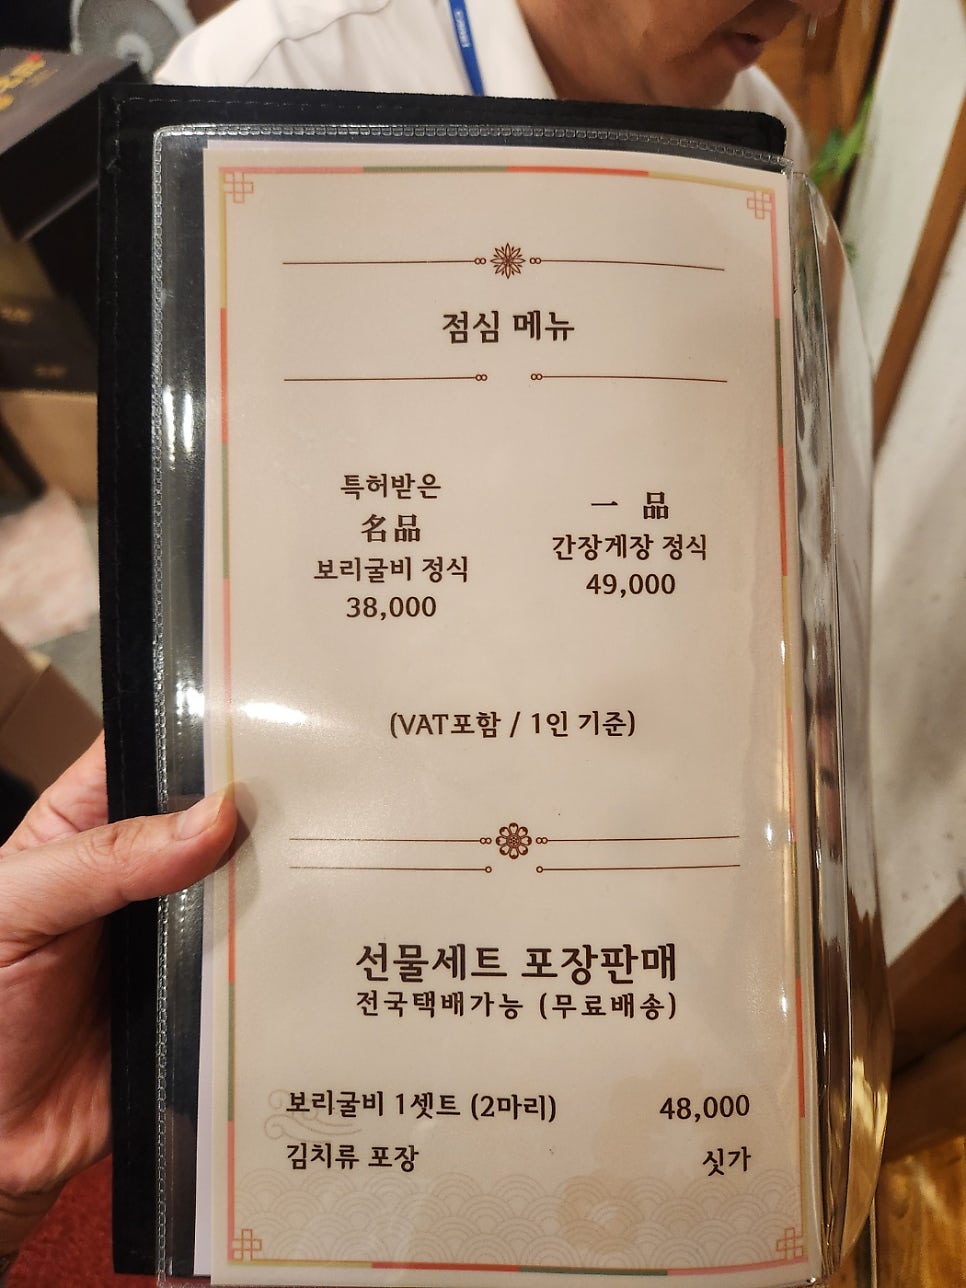 점심 메뉴
특허받은
名品
보리굴비 정식
38,000
一 品
간장게장 정식
49,000
(VAT포함 / 1인 기준)
선물세트 포장판매
전국택배가능 (무료배송)
보리굴비 1셋트 (2마리) 48,000
김치류 포장 싯가